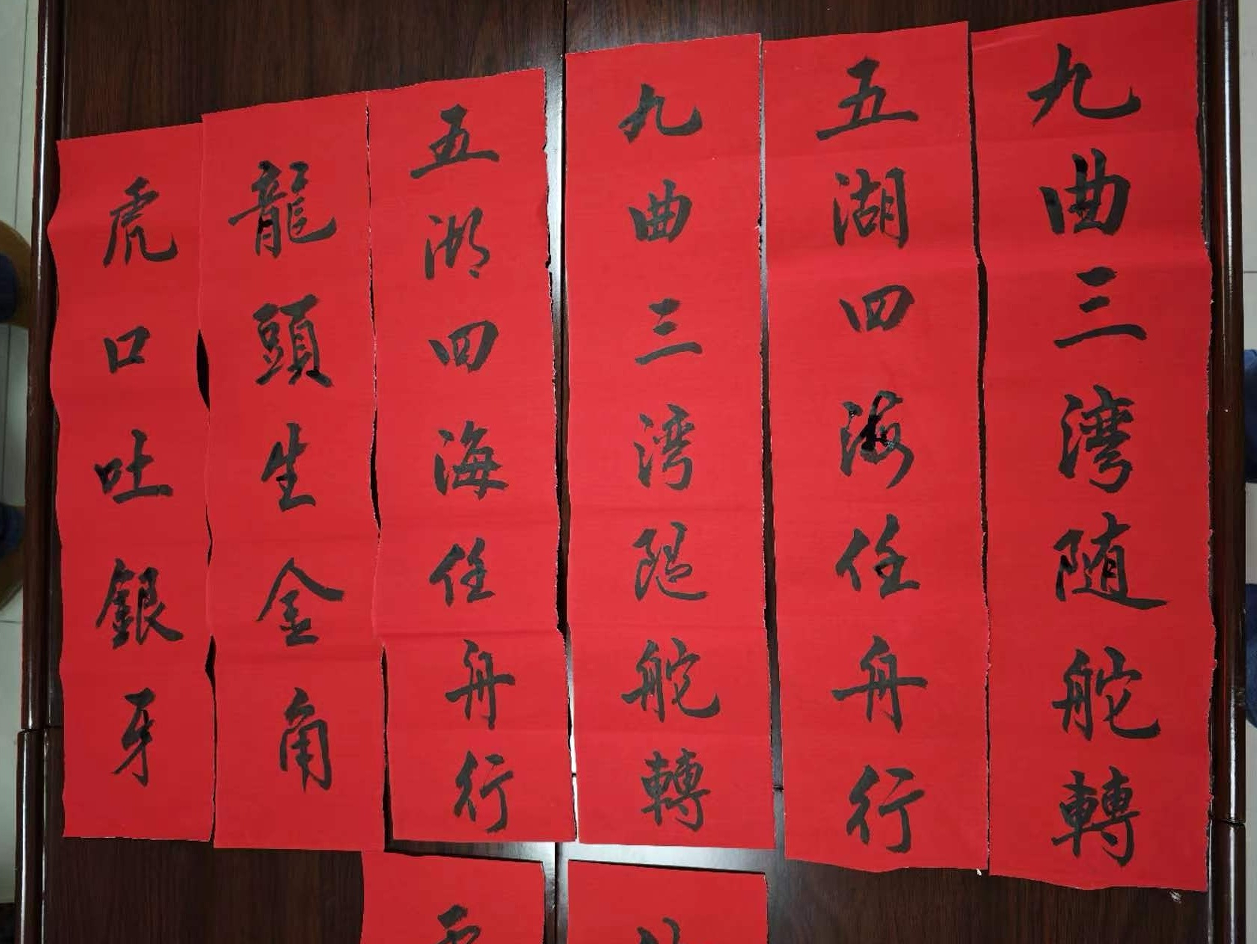 九曲三湾随舵轉
五湖四海任舟行
九曲三湾随舵轉
五湖四海任舟行
龍頭生金角
虎口吐銀牙